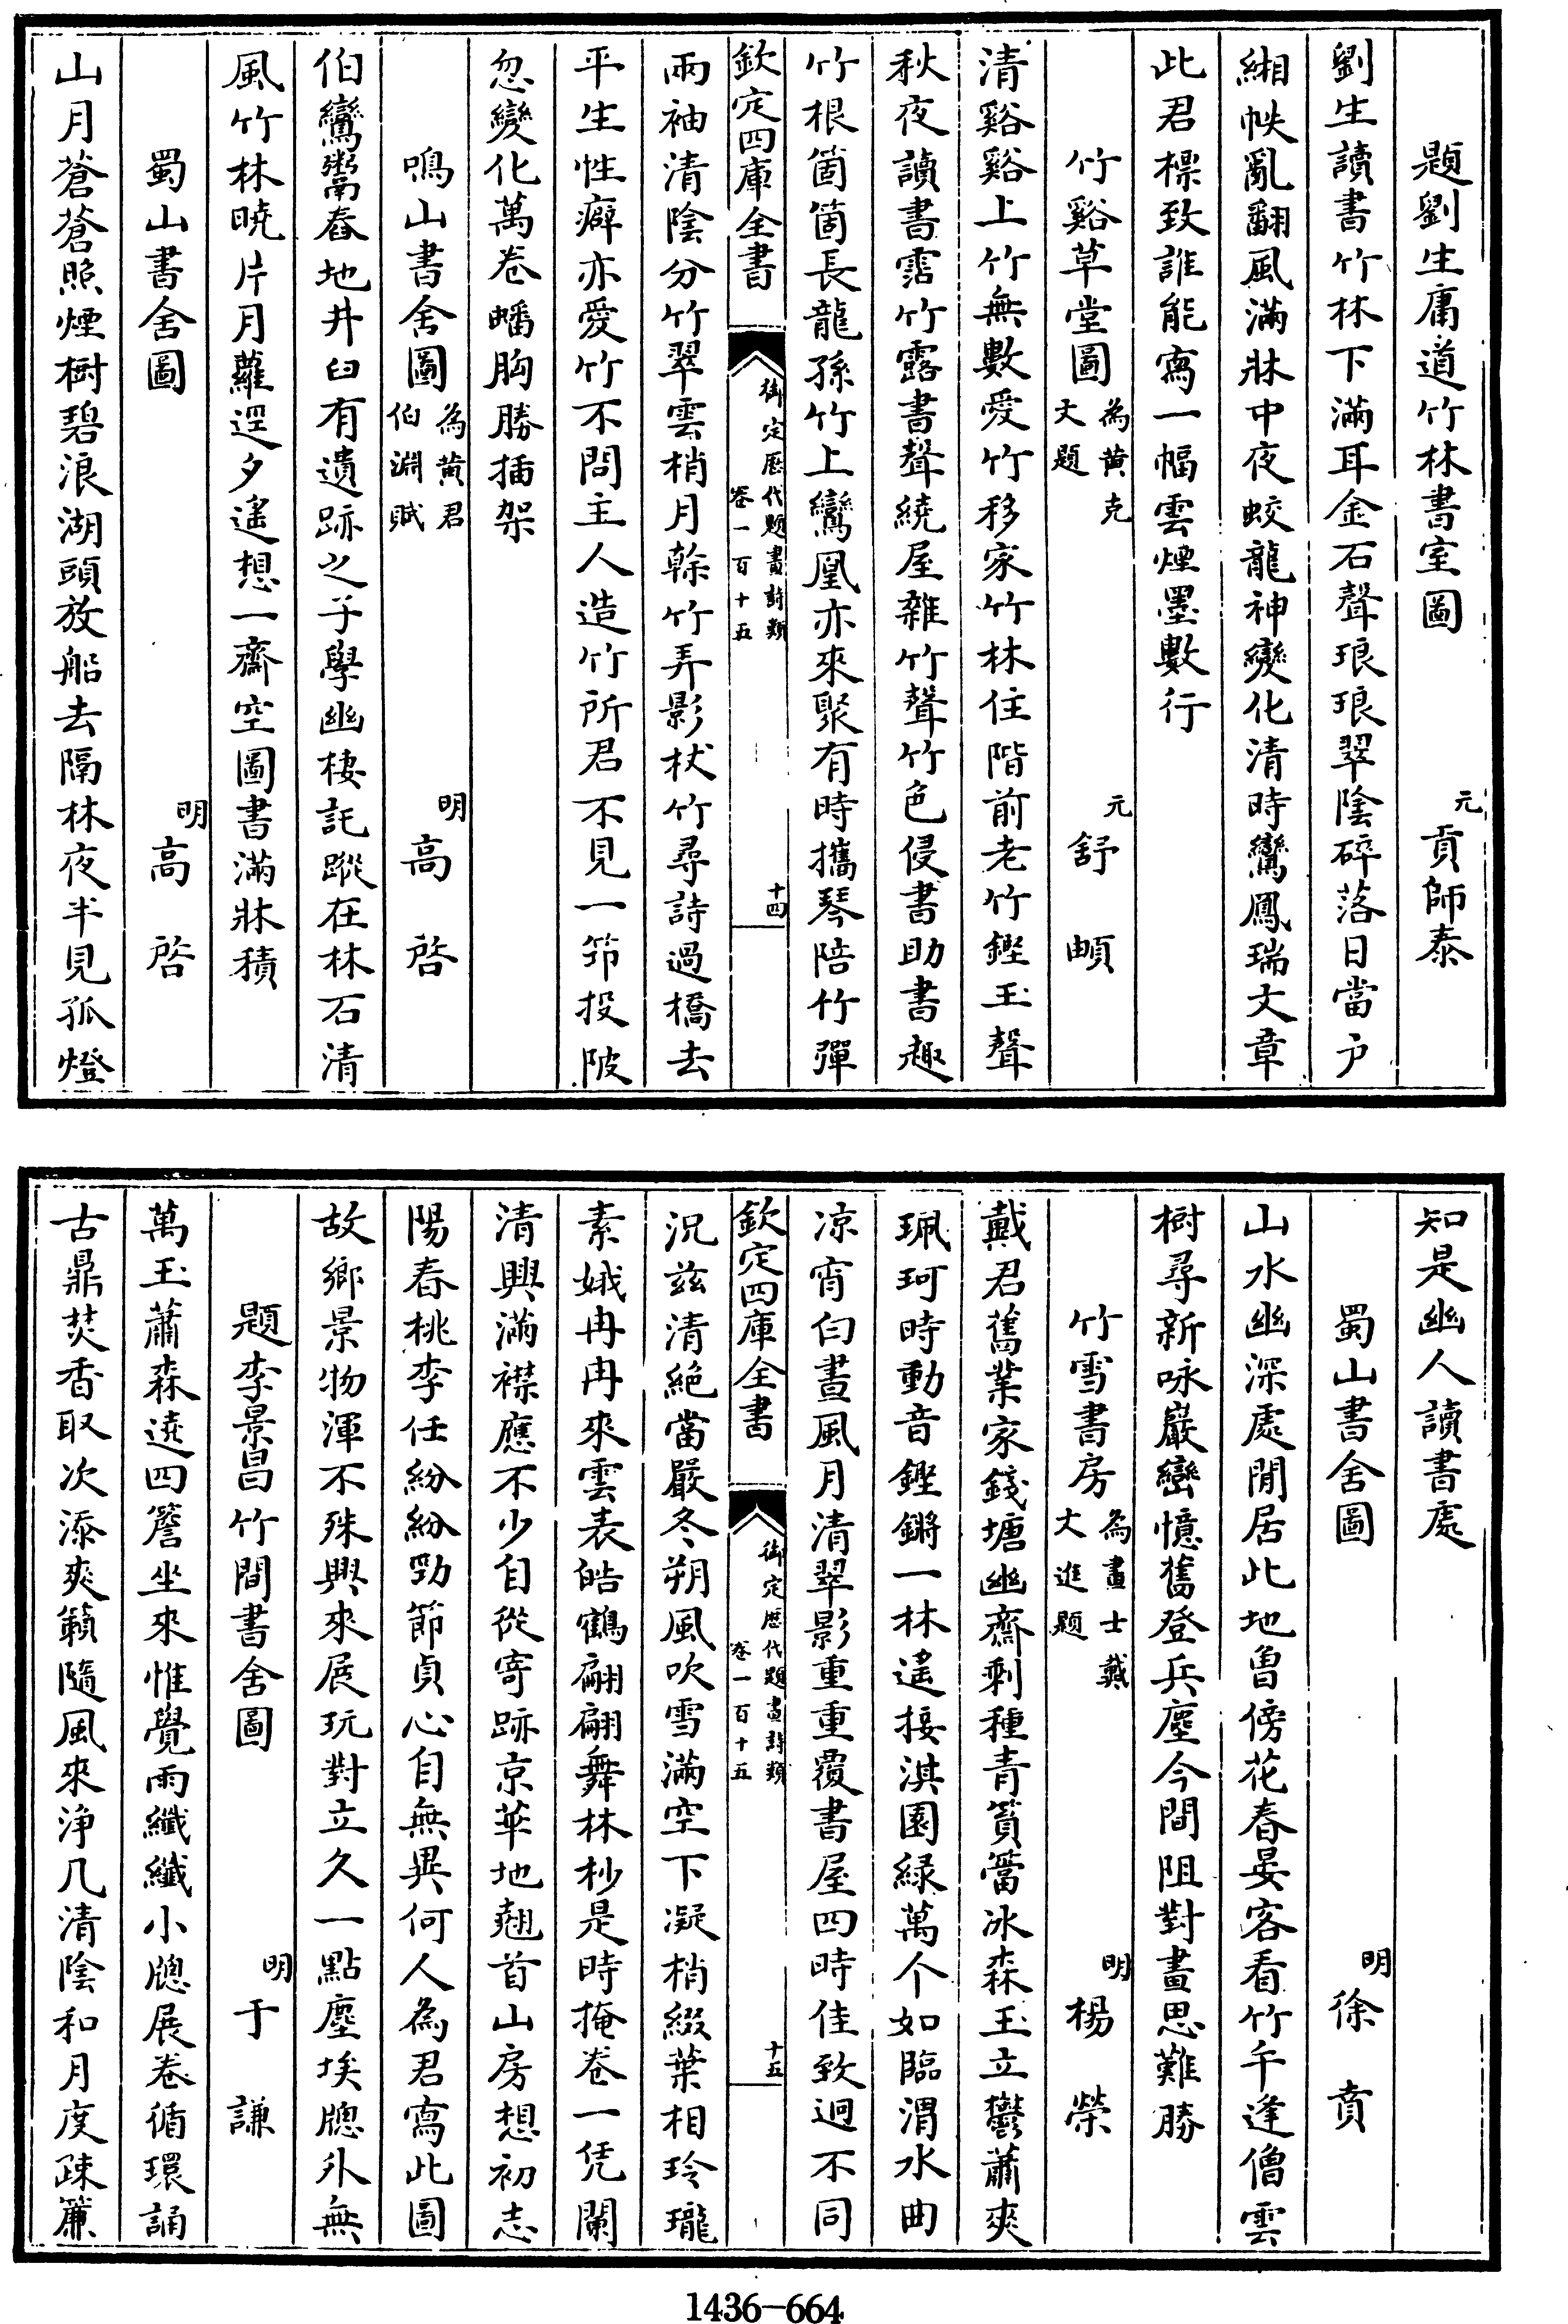 題劉生庸道竹林書室圖　元貢師泰
劉生讀書竹林下滿耳金石聲琅琅翠陰碎落日當户
緗帙亂翻風滿牀中夜蛟龍神變化清時鸞鳳瑞文章
此君標致誰能寫一幅雲煙墨數行
竹谿草堂圖為黄克文題　元舒頔
清谿谿上竹無數愛竹移家竹林住階前老竹鏗玉聲
秋夜讀書霑竹露書聲繞屋雜竹聲竹色侵書助書趣
竹根箇箇長龍孫竹上鸞凰亦來聚有時攜琴陪竹彈
欽定四庫全書　御定歷代題畫詩類卷一百十五　十四
兩袖清陰分竹翠雲梢月榦竹弄影杖竹尋詩過橋去
平生性癖亦愛竹不問主人造竹所君不見一笻投陂
忽變化萬卷蟠胸勝插架
鳴山書舍圖為黄君伯淵賦　明高啓
伯鸞鬻舂地井臼有遺跡之子學幽棲託蹤在林石清
風竹林曉片月蘿逕夕遙想一齋空圖書滿牀積
蜀山書舍圖　明高啓
山月蒼蒼照煙樹碧浪湖頭放船去隔林夜半見孤燈
知是幽人讀書處
蜀山書舍圖　明徐賁
山水幽深處閒居此地曾傍花春晏客看竹午逢僧雲
樹尋新咏巖巒憶舊登兵塵今間阻對畫思難勝
竹雪書房為畫士戴文進題　明楊榮
戴君舊業家錢塘幽齋剩種青篔簹冰森玉立鬱蕭爽
珮珂時動音鏗鏘一林遙接淇園緑萬个如臨渭水曲
凉宵白晝風月清翠影重重覆書屋四時佳致迥不同
欽定四庫全書　御定歷代題畫詩類卷一百十五　十五
況兹清絶當嚴冬朔風吹雪滿空下凝梢綴葉相玲瓏
素娥冉冉來雲表皓鶴翩翩舞林杪是時掩卷一凭闌
清興滿襟應不少自從寄跡京華地翹首山房想初志
陽春桃李任紛紛勁節貞心自無異何人為君寫此圖
故鄉景物渾不殊興來展玩對立久一點塵埃牕外無
題李景昌竹間書舍圖　明于謙
萬玉蕭森遶四簷坐來惟覺雨纖纖小牕展卷循環誦
古鼎焚香取次添爽籟隨風來浄几清陰和月度疎簾
1436-664